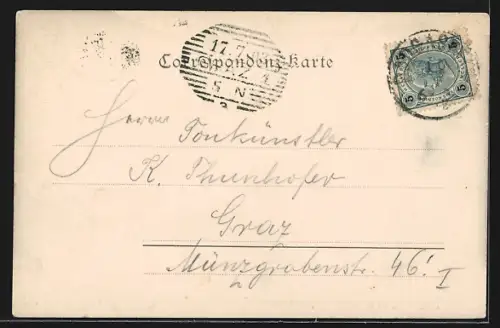 17.7.
Correspondenz-Karte
5 N
5 5
Herrn Tonkünstler
K. Thurnhofer
Graz
Münzgrabenstr. 46.
I